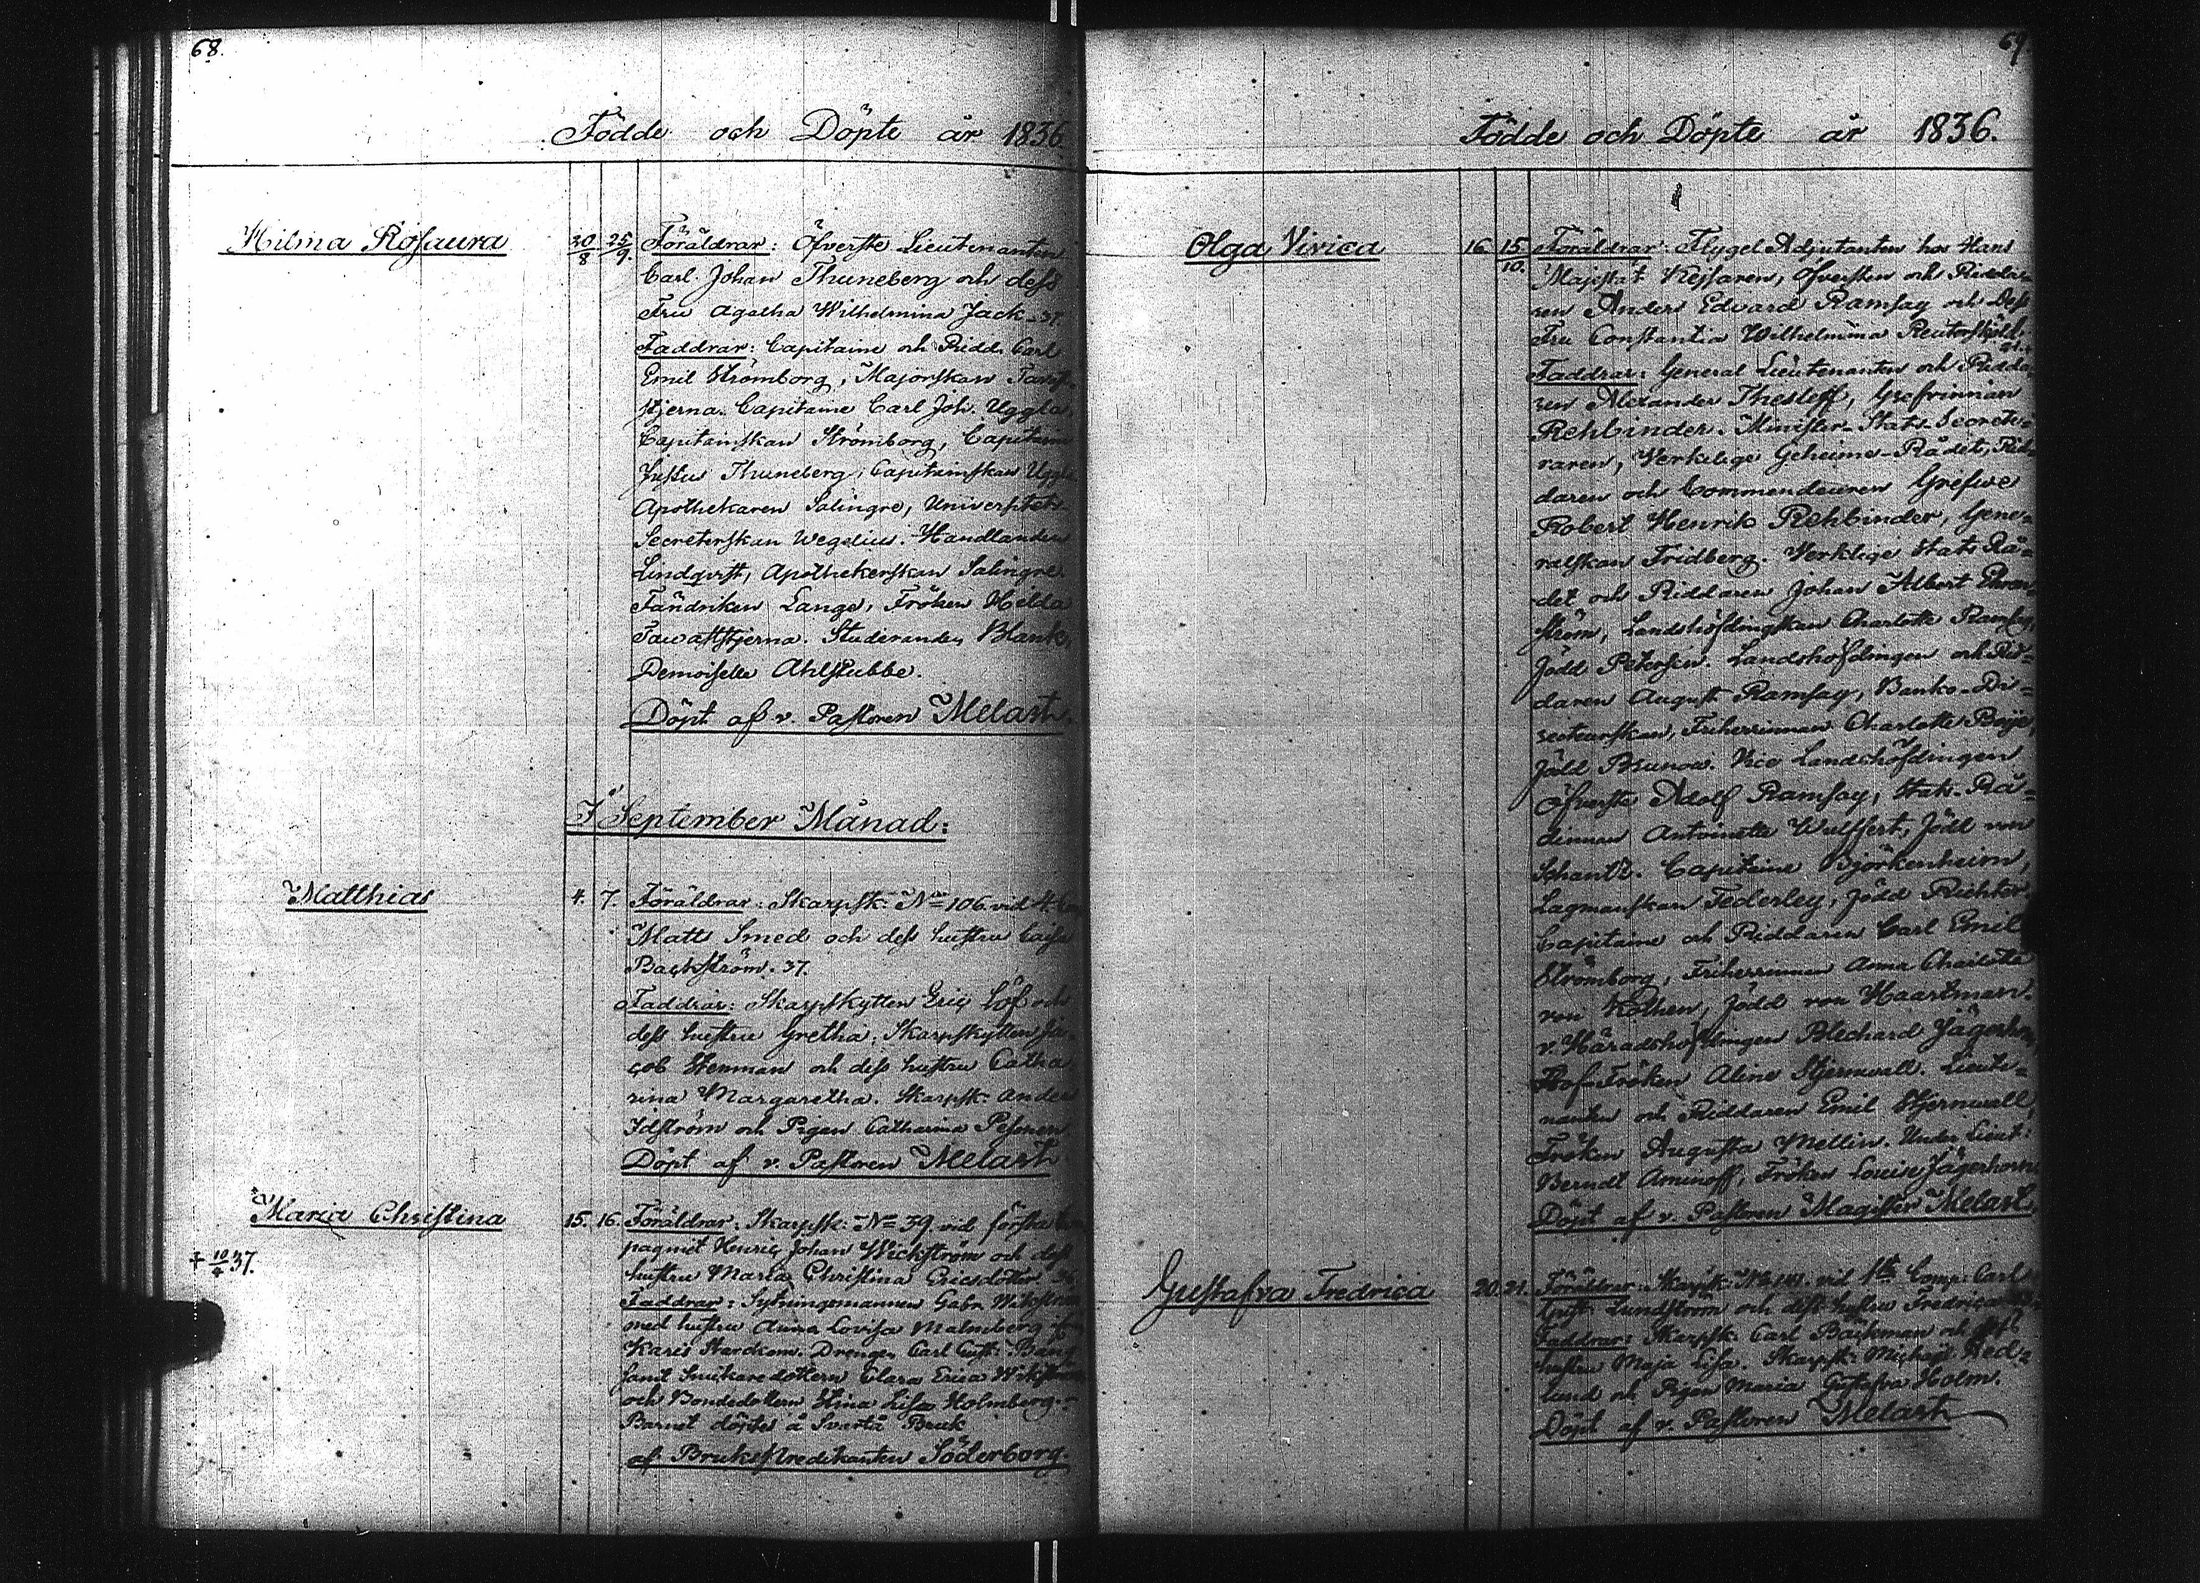 68.
Födde och Döpte år 1836
Hilma Rosaura
20/8 25/9.
Föräldrar: Öfverste Lieutenanten
Carl Johan Thuneberg och dess
Fru Agatha Wilhelmina Jack. 37.
Faddrar: Capitaine och Ridd. Carl
Emil Strömborg, Majorskan Tavast
stjerna. Capitaine Carl Joh. Uggla,
Capitainskan Strömborg, Capitaine
Justus Thuneberg, Capitainskan Uggla
Apothekaren Salingre, Universitets
Secreterskan Wegelius. Handlanden
Lindqvist, Apothekerskan Salingre.
Fändriken Lange, Fröken Hilda
Tawaststjerna. Studeranden Blank,
Demoiselle Ahlstubbe.
Döpt af v. Pastoren Melart.
I September Månad:
Matthias
4. 7.
Föräldrar: Skarpsk: No 106 vid 4. Com
Matts Smed och dess hustru Caisa
Backström. 37.
Faddrar: Skarpskytten Eric Löf och
dess hustru Gretha. Skarpskytten Ja-
cob Stenman och dess hustru Catha
rina Margaretha. Skarpsk: Anders
Idström och Pigan Catharina Pesonen
Döpt af v. Pastoren Melart
Maria Christina
15. 16.
+ 10/4 37.
Föräldrar: Skarpsk: No 39 vid första Com
pagniet Henric Johan Wickström och dess
hustru Maria Christina Ericsdotter
Faddrar: Sytningsmannen Gabr. Wikström
med hustru Anna Lovisa Malmberg ifrån
Karis Drengen Carl Gust:
samt Snickaredottern Clara Erica Wikström
och Bondedottern Stina Lisa Holmberg.
Barnet döptes å Svartå Bruk
af Brukspredikanten Söderborg.
69.
Födde och Döpte år 1836.
Olga Vivica
16. 15/10.
Föräldrar: Flygel Adjutanten hos Hans
Majestät Kejsaren, Öfversten och Riddar-
ren Anders Edvard Ramsay och Dess
Fru Constantia Wilhelmina Reuterskjöld.
Faddrar: General Lieutenanten och Ridda-
ren Alexander Thesleff, Grefvinnan
Rehbinder. Minister-Stats-Secrete-
raren, Verkelige Geheime-Rådet, Rid-
daren och Commendeuren Grefwe
Robert Henrik Rehbinder, Gene-
ralskan Fridberg. Verklige Stats Rå-
det och Riddaren Johan Albert Ehren-
ström, Landshöfdingskan Charlotte Ramsay,
född Petersen. Landshöfdingen och Rid-
daren August Ramsay, Banko-Di-
recteurskan, Friherrinnan Charlotte Boije,
född Brunow. Vice Landshöfdingen
Öfverste Adolf Ramsay, Stats-Rå-
dinnan Antoinette Wulffert, född von
Schantz. Capitaine Björkenheim,
Lagmanskan Federley, född Richter
Capitaine och Riddaren Carl Emil
Strömborg, Friherrinnan Anna Charlotta
von Kothen, född von Haartman.
v. Häradshöfdingen Blechard Jägerhorn,
Hof-Fröken Aline Stjernwall. Lieute-
nanten och Riddaren Emil Stjernwall,
Fröken Augusta Mellin. Under Lieut:
Berndt Aminoff, Fröken Louise Jägerhorn
Döpt af v. Pastoren Magister Melart.
Gustafva Fredrica
20. 21.
Föräldrar: Skarpsk: No vid 1sta Comp: Carl
Gust: Lundström och dess hustru Fredrica
Faddrar: Skarpsk: Carl Bäckman och dess
hustru Maja Lisa. Skarpsk: Michael Hed-
lund och Pigan Maria Gustafva Holm.
Döpt af v. Pastoren Melart